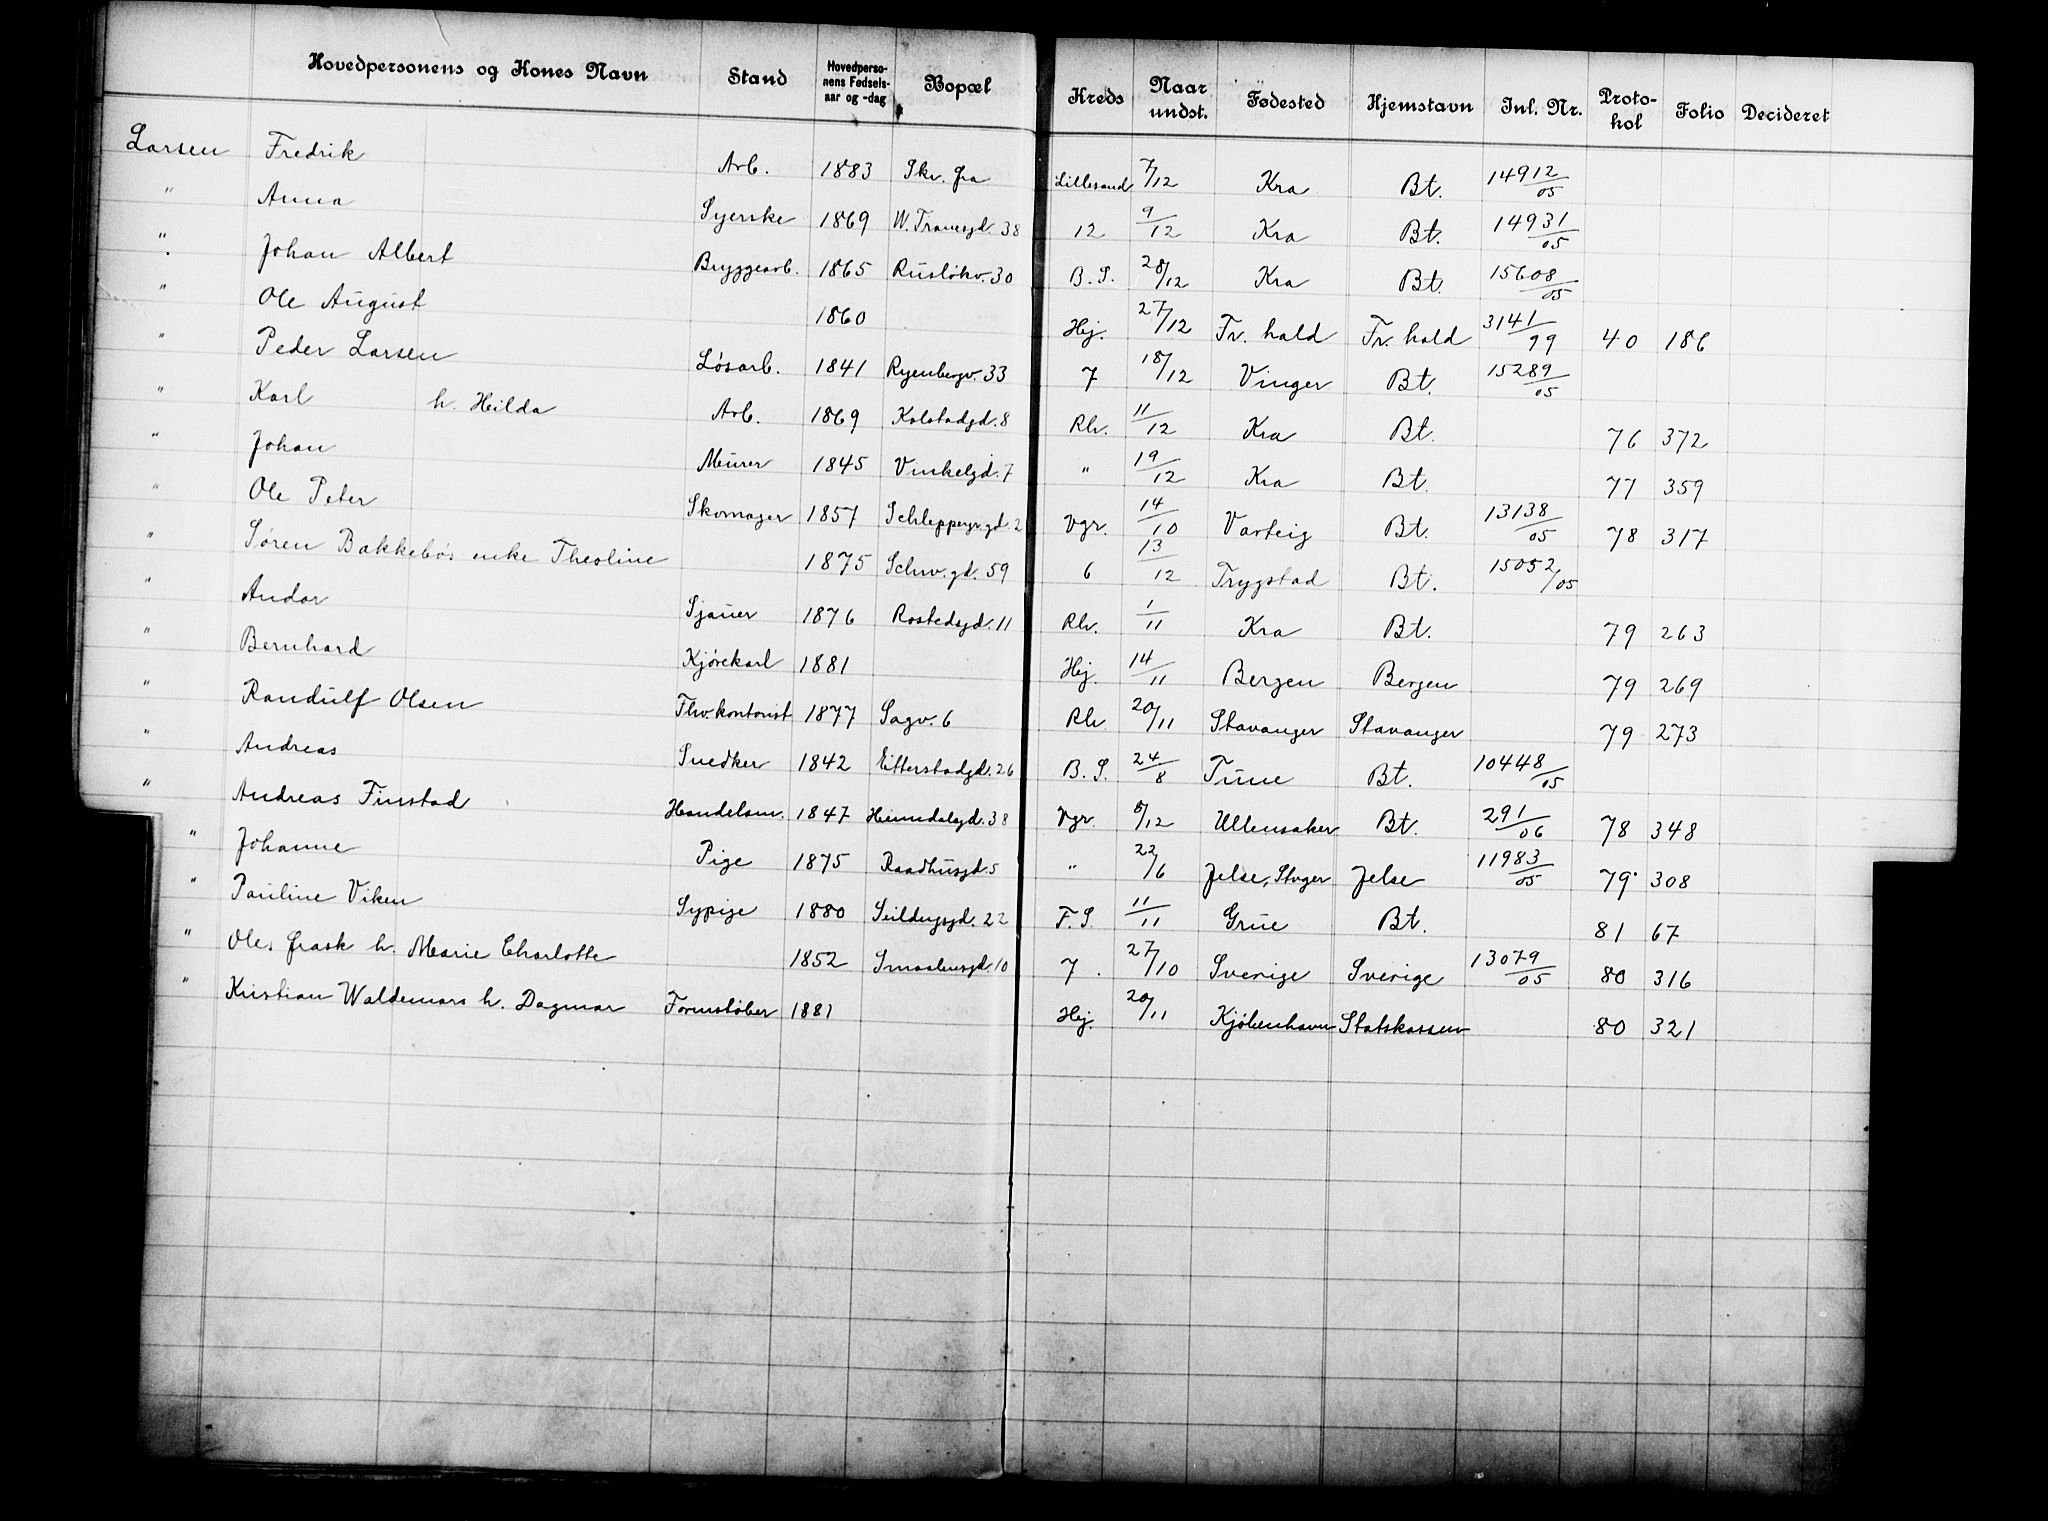 Hovedpersonens og Kones Navn Stand Hovedperso-nens Fødsels-aar og -dag Bopæl Kreds Naar undst. Fødested Hjemstavn Inl. Nr. Proto-kol Folio Decideret
Larsen Fredrik Arb. 1883 Skr. fra Lillesand 7/12 Kra Bt. 14912/05
" Anna Syerske 1869 W. Tranesgd. 38 12 9/12 Kra Bt. 14931/05
" Johan Albert Bryggearb. 1865 Rusløkv. 30 B. S. 28/12 Kra Bt. 15608/05
" Ole August 1860 Hej. 27/12 Fr. hald Fr. hald 3141/99 40 186
" Peder Larsen Løsarb. 1841 Ryenbergv. 33 7 18/12 Vinger Bt. 15289/05
" Karl h. Hilda Arb. 1869 Kolstadgd. 8 Rh. 11/12 Kra Bt. 76 372
" Johan Murer 1845 Vinkelgd. 7 " 19/12 Kra Bt. 77 359
" Ole Peter Skomager 1857 Schleppegr.gd. 2 Vgr. 14/10 Varteig Bt. 13138/05 78 317
" Søren Bakkebøs enke Theoline 1875 Schw. gd. 59 6 13/12 Trygstad Bt. 15052/05
" Andor Sjauer 1876 Rostedsgd. 11 Rh. 1/11 Kra Bt. 79 263
" Bernhard Kjørekarl 1881 Hej. 14/11 Bergen Bergen 79 269
" Randulf Olsen Fhv. kontorist 1877 Sagv. 6 Rh 20/11 Stavanger Stavanger 79 273
" Andreas Snedker 1842 Eitterstadgd. 26 B. S. 24/8 Tune Bt. 10448/05
" Andreas Finstad Handelsm. 1847 Heimdalsgd. 38 Vgr. 8/12 Ullensaker Bt. 291/06 78 348
" Johanne Pige 1875 Raadhusgd. 5 " 22/6 Jelse, Stvger Jelse 11983/05 79 308
" Pauline Viken Sypige 1880 Seildugsgd. 22 F. S. 11/11 Grue Bt. 81 67
" Oles frask h. Marie Charlotte 1852 Smaalensgd. 10 7. 27/10 Sverige Sverige 13079/05 80 316
" Kristian Waldemars h. Dagmar Formstøber 1881 Hej. 20/11 Kjøbenhavn Statskassen 80 321